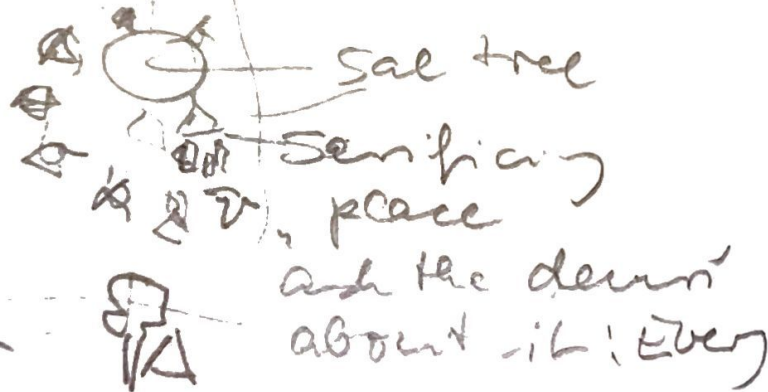 Sal tree
Sacrificing
place
ask the
about it: Every